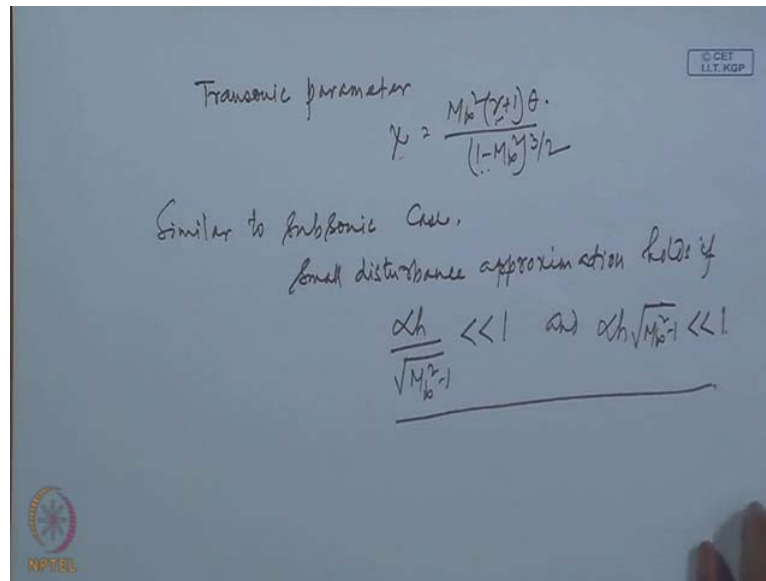 © CET
I.I.T. KGP
Transonic parameter
χ = M∞²(γ+1)θ / (1-M∞²)^3/2
Similar to subsonic Case,
Small disturbance approximation holds if
αh / √(M∞²-1) << 1 and αh √(M∞²-1) << 1
NPTEL